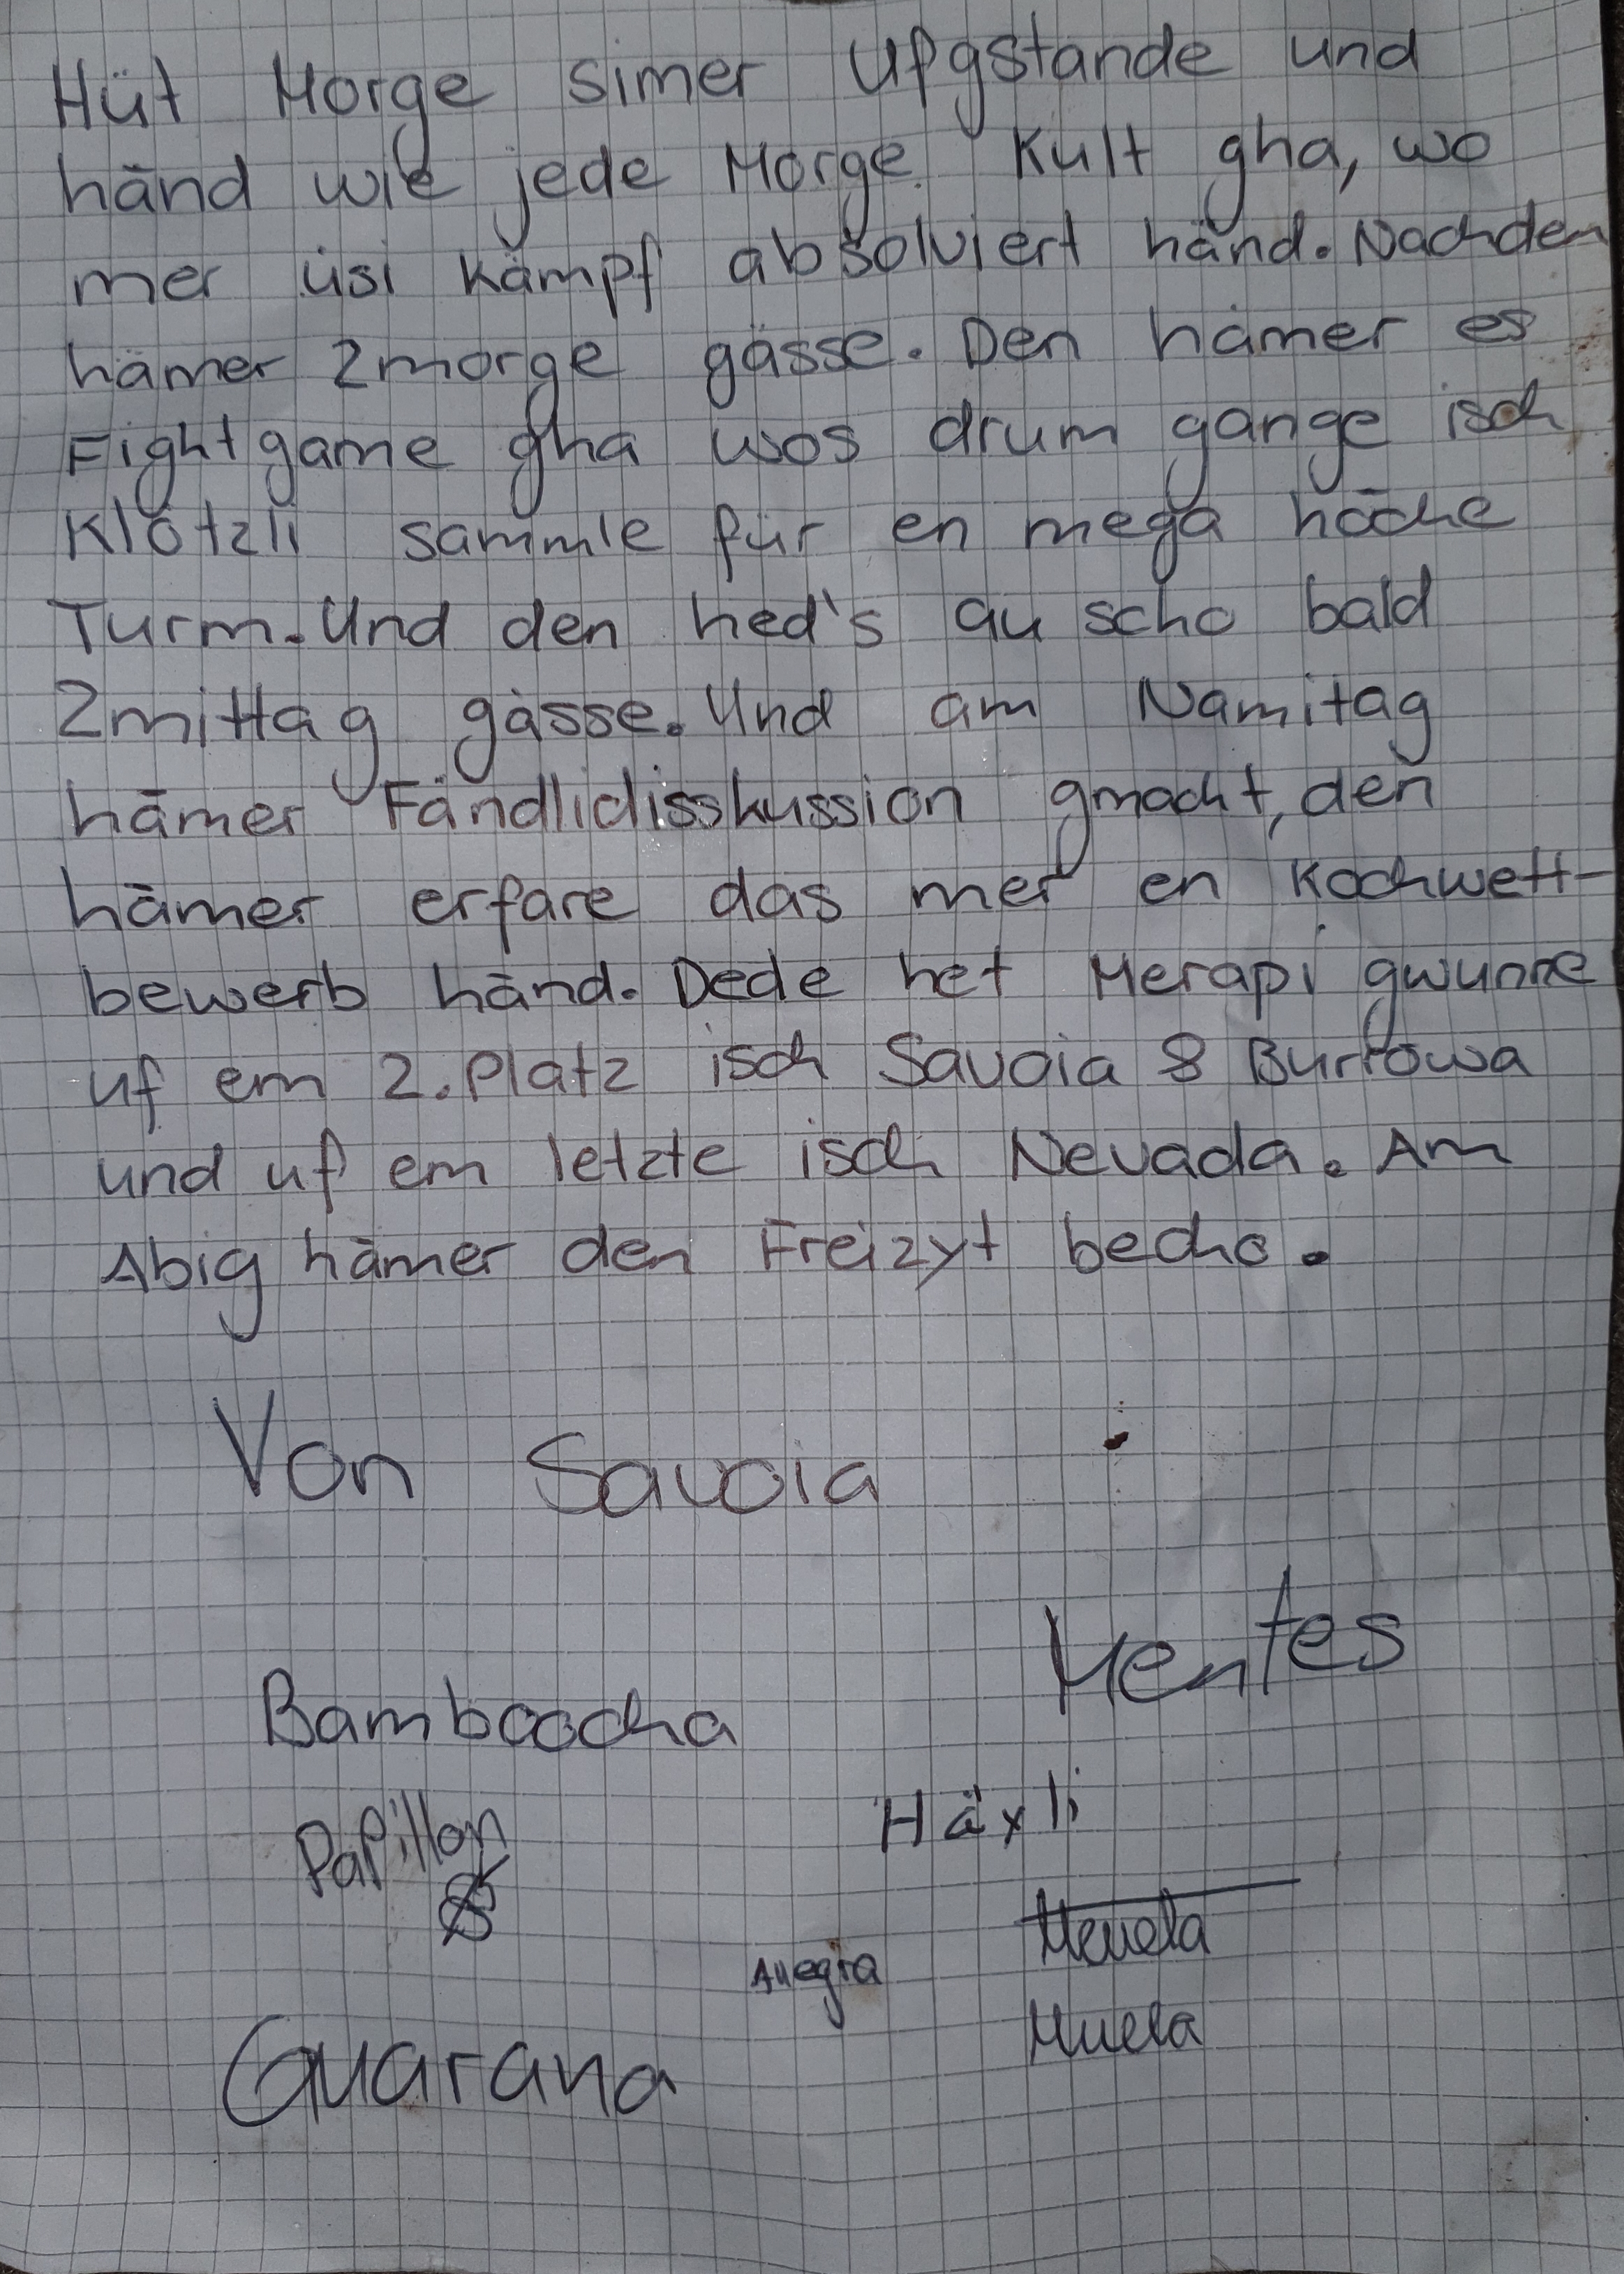 Hüt Morge simer ufgstande und
händ wie jede Morge Kult gha, wo
mer üsi kämpf absolviert händ. Nachden
hämer Zmorge gässe. Den hämer es
Fightgame gha wos drum gange isch
Klötzli sammle für en mega höche
Turm. Und den hed's au scho bald
Zmittag gässe. Und am Namitag
hämer Fändlidisskussion gmacht, den
hämer erfare das mer en Kochwett-
bewerb händ. Dede het Merapi gwunne
uf em 2. Platz isch Savoia & Burrowa
und uf em letzte isch Nevada. Am
Abig hämer den Freizyt becho.
Von Savoia
Mentes
Bamboocha
Häxli
Papillon
Allegra
Guarana